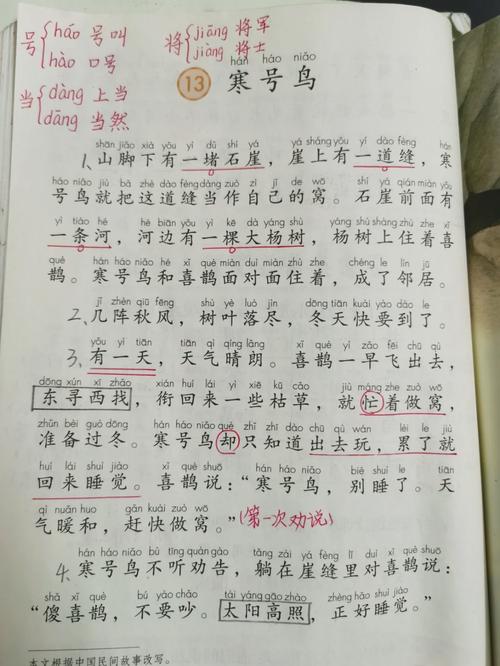 号{háo 号叫
hào 口号
将{jiāng 将军
jiàng 将士
当{dàng 上当
dāng 当然
hán háo niǎo
13 寒号鸟
shān jiǎo xià yǒu yì dǔ shí yá yá shàng yǒu yí dào fèng hán
1、山脚下有一堵石崖，崖上有一道缝，寒
háo niǎo jiù bǎ zhè dào fèng dàng zuò zì jǐ de wō shí yá qián miàn yǒu
号鸟就把这道缝当作自己的窝。石崖前面有
yì tiáo hé hé biān yǒu yì kē dà yáng shù yáng shù shàng zhù zhe xǐ
一条河，河边有一棵大杨树，杨树上住着喜
què hán háo niǎo hé xǐ què miàn duì miàn zhù zhe chéng le lín jū
鹊。寒号鸟和喜鹊面对面住着，成了邻居。
jǐ zhèn qiū fēng shù yè luò jìn dōng tiān kuài yào dào le
2、几阵秋风，树叶落尽，冬天快要到了。
yǒu yì tiān tiān qì qíng lǎng xǐ què yì zǎo fēi chū qù
3、有一天，天气晴朗。喜鹊一早飞出去，
dōng xún xī zhǎo xián huí lái yì xiē kū cǎo jiù máng zhe zuò wō
东寻西找，衔回来一些枯草，就忙着做窝，
zhǔn bèi guò dōng hán háo niǎo què zhǐ zhī dào chū qù wán lèi le jiù
准备过冬。寒号鸟却只知道出去玩，累了就
huí lái shuì jiào xǐ què shuō hán háo niǎo bié shuì le tiān
回来睡觉。喜鹊说：“寒号鸟，别睡了。天
qì nuǎn huo gǎn kuài zuò wō
气暖和，赶快做窝。”(第一次劝说)
hán háo niǎo bù tīng quàn gào tǎng zài yá fèng lǐ duì xǐ què shuō
4、寒号鸟不听劝告，躺在崖缝里对喜鹊说：
shǎ xǐ què bú yào chǎo tài yáng gāo zhào zhèng hǎo shuì jiào
“傻喜鹊，不要吵。太阳高照，正好睡觉。”
本文根据中国民间故事改写。